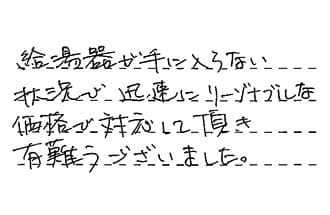 給湯器が手に入らない
状況で迅速にリーズナブルな
価格で対応して頂き
有難うございました。